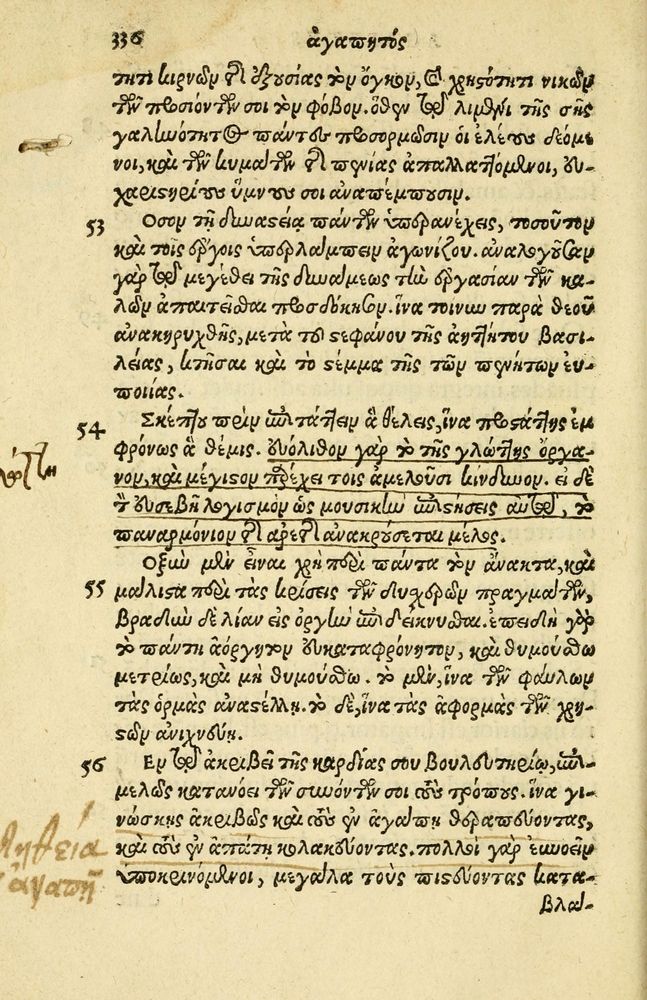 336 ἀγαπητός
τητι κιρνῶν τῆς ἐξουσίας τὸν ὄγκον, καὶ χρηστότητι νικῶν
τῶν προσιόντων σοι τὸν φόβον. ὅθεν τῷ λιμένι τῆς σῆς
γαληνότητος πάντες προσορμῶσιν οἱ ἐλέους δεόμε
νοι, καὶ τῶν κυμάτων τῆς πενίας ἀπαλλαττόμενοι, εὐ-
χαριστηρίους ὕμνους σοι ἀναπέμπουσιν.
53 Ὅσον τῇ δυναστείᾳ πάντων ὑπερανέχεις, τοσοῦτον
καὶ τοῖς ἔργοις ὑπερλάμπειν ἀγωνίζου. ἀναλογοῦσαν
γὰρ τῷ μεγέθει τῆς δυνάμεως τὴν ἐργασίαν τῶν κα-
λῶν ἀπαιτεῖσθαι προσδόκησον. ἵνα τοίνυν παρὰ θεοῦ
ἀνακηρυχθῇς, μετὰ τοῦ στεφάνου τῆς ἀηττήτου βασι-
λείας, κτῆσαι καὶ τὸ στέμμα τῆς τῶν πενήτων εὐ-
ποιίας.
54 Σκέπτου πρὶν ἐπιτάττειν ἃ θέλεις, ἵνα προστάττῃς ἐμ
φρόνως ἃ θέμις. εὐόλισθον γὰρ τὸ τῆς γλώττης ὄργα-
νον, καὶ μέγιστον παρέχει τοῖς ἀμελοῦσι κίνδυνον. εἰ δὲ
τὸν εὐσεβῆ λογισμὸν ὡς μουσικὸν ἐπιστήσεις αὐτῷ, τὸ
παναρμόνιον τῆς ἀρετῆς ἀνακρούσεται μέλος.
Ὀξὺν μὲν εἶναι χρὴ περὶ πάντα τὸν ἄνακτα, καὶ
55 μάλιστα περὶ τὰς κρίσεις τῶν δυσχερῶν πραγμάτων,
βραδὺν δὲ λίαν εἰς ὀργὴν ἐπιδείκνυσθαι. ἐπειδὴ γὰρ
τὸ πάντη ἀόργητον εὐκαταφρόνητον, καὶ θυμούσθω
μετρίως, καὶ μὴ θυμούσθω. τὸ μὲν, ἵνα τῶν φαύλων
τὰς ὁρμὰς ἀναστέλλῃ. τὸ δὲ, ἵνα τὰς ἀφορμὰς τῶν χρη-
στῶν ἀνιχνεύῃ.
56 Ἐν τῷ ἀκριβεῖ τῆς καρδίας σου βουλευτηρίῳ, ἐπι-
μελῶς κατανόει τῶν συνόντων σοι τοὺς τρόπους. ἵνα γι-
νώσκῃς ἀκριβῶς καὶ τοὺς ἐν ἀγάπῃ θεραπεύοντας,
καὶ τοὺς ἐν ἀπάτῃ κολακεύοντας. πολλοὶ γὰρ εὐνοεῖν
ὑποκρινόμενοι, μεγάλα τοὺς πιστεύοντας κατα-
βλά-
ἀγάπη